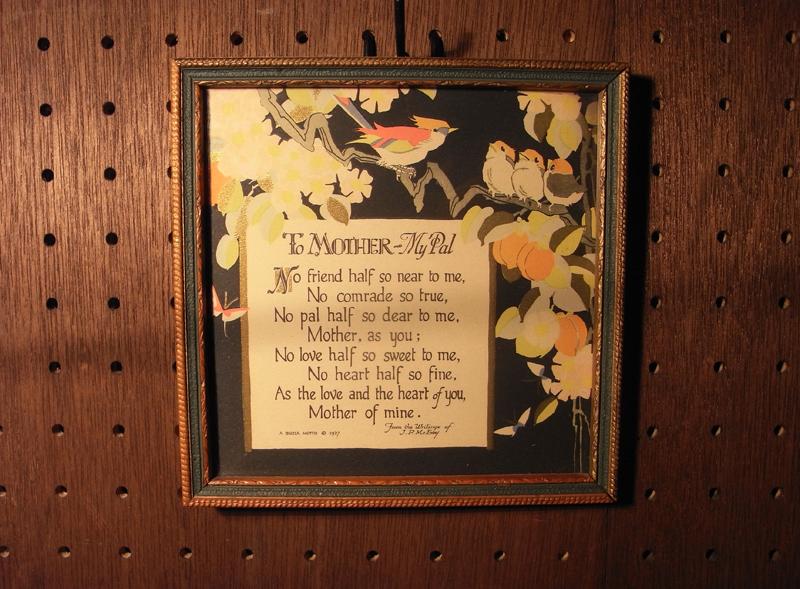 To MOTHER-My Pal
No friend half so near to me,
No comrade so true,
No pal half so dear to me,
Mother, as you;
No love half so sweet to me,
No heart half so fine,
As the love and the heart of you,
Mother of mine.
From the Writings of
J. P. McEvoy
A BUZZA MOTTO © 1927